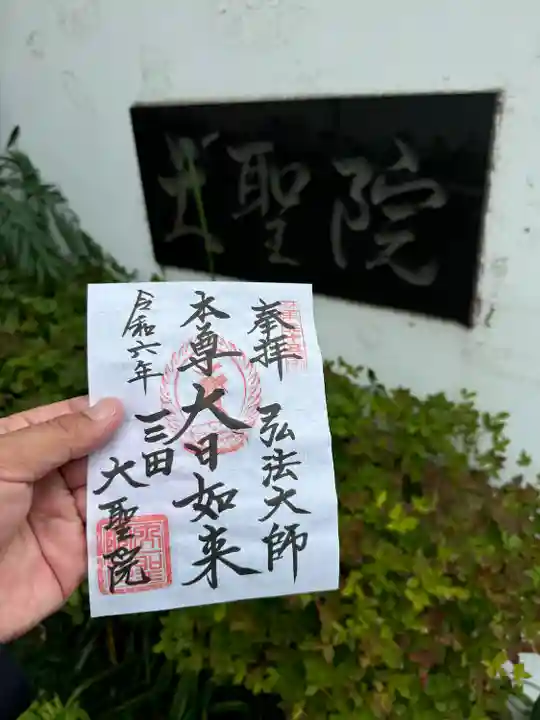 聖院
奉拝 弘法大師
本尊 大日如来
令和六年
三田
大聖院